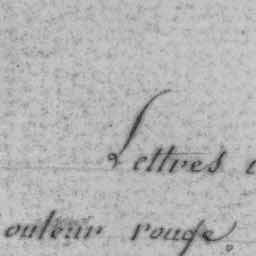 Lettres
ouleur rouge.